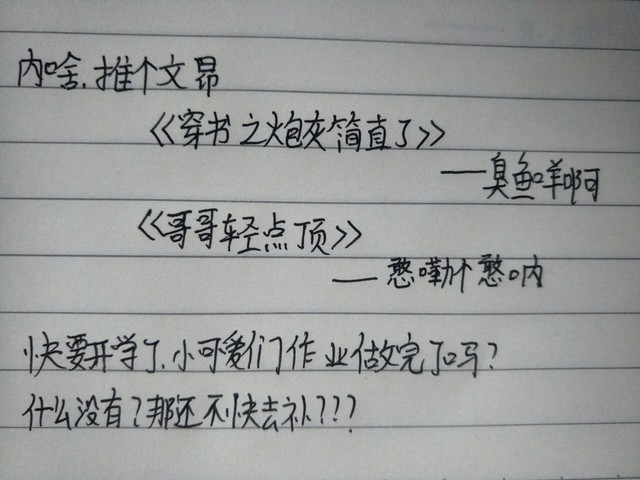 内啥.推个文昂
《穿书之炮灰简直了》
——臭鱼咩啊
《哥哥轻点顶》
——憨嘞个憨呐
快要开学了.小可爱们作业做完了吗?
什么没有?那还不快去补???